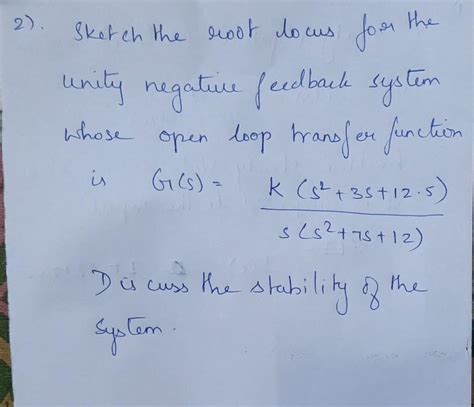 2). Sketch the root locus for the
unity negative feedback system
whose open loop transfer function
is G(s) = K (s² + 3s + 12.5)
s (s² + 7s + 12)
Discuss the stability of the
system.